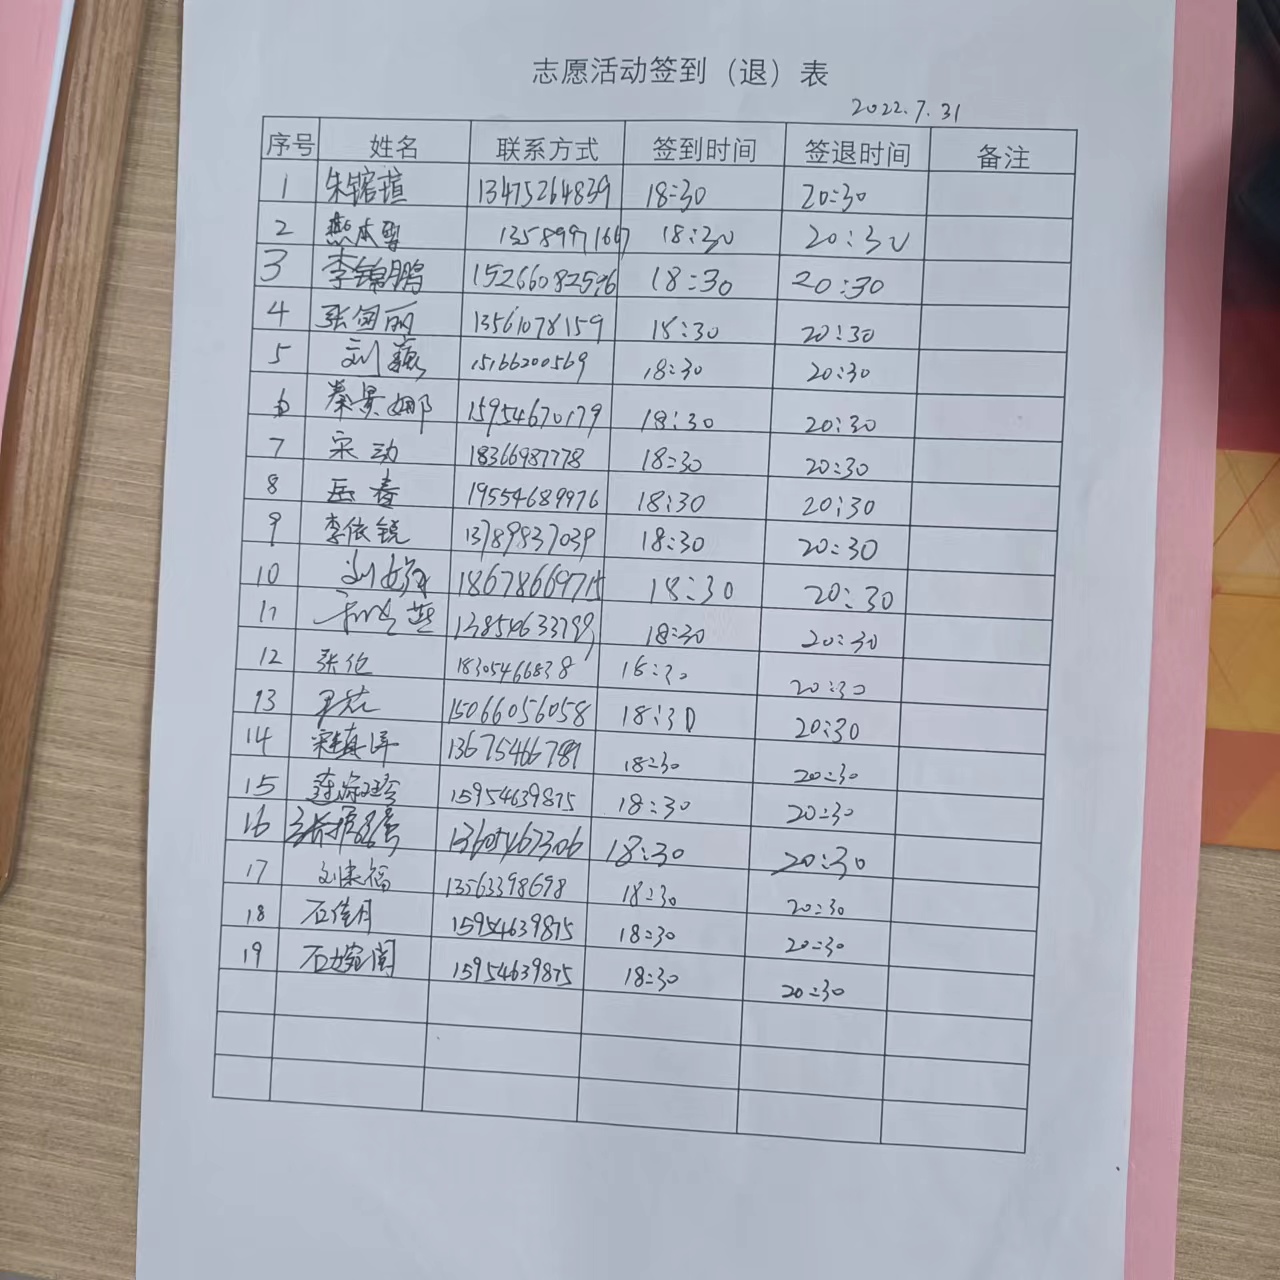 志愿活动签到（退）表
2022.7.31
序号 姓名 联系方式 签到时间 签退时间 备注
1 朱镕瑄 13475264839 18:30 20:30
2 燕本 1358997166 18:30 20:30
3 李锦鹏 15266082576 18:30 20:30
4 张 丽 13561078159 18:30 20:30
5 刘 15166200569 18:30 20:30
6 秦景娜 15954670179 18:30 20:30
7 宋动 18366987778 18:30 20:30
8 岳春 19554689976 18:30 20:30
9 李依锐 13789837039 18:30 20:30
10 刘 18678669715 18:30 20:30
11 燕 13854633799 18:30 20:30
12 张伦 18305466838 18:30 20:30
13 15066056058 18:30 20:30
14 宋镇洋 13675466789 18:30 20:30
15 15954639875 18:30 20:30
16 13605467306 18:30 20:30
17 刘来福 13563398698 18:30 20:30
18 石佳月 15954639875 18:30 20:30
19 石婉闺 15954639875 18:30 20:30